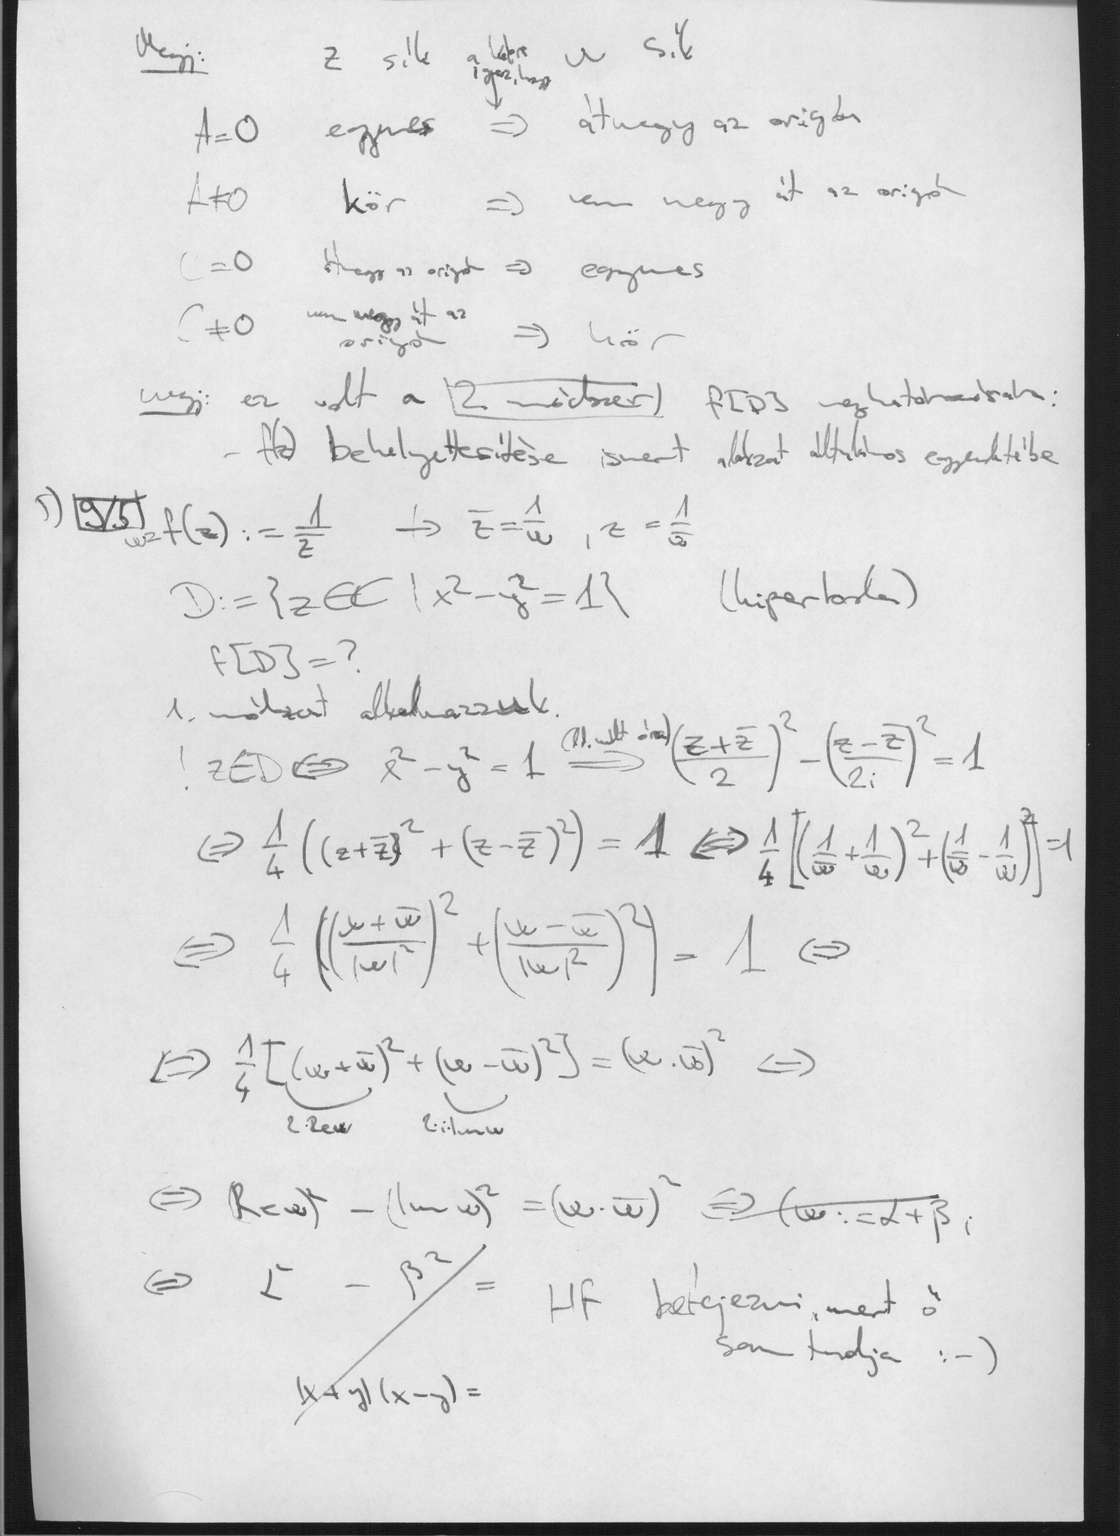 Megj: z sík a képre igaz, hogy w sík
A=0 egyenes ⇒ átmegy az origón
A≠0 kör ⇒ nem megy át az origón
C=0 átmegy az origón ⇒ egyenes
C≠0 nem megy át az origón ⇒ kör
megj: ez volt a 2. módszer f[D] meghatározására:
- f(z) behelyettesítése ismert alakzat általános egyenletébe
5) 9/5 w=f(z) := 1/z̄ → z̄ = 1/w , z = 1/w̄
D := {z∈ℂ | x²-y²=1} (hiperbola)
f[D]=?
1. módszert alkalmazzuk.
! z∈D ⇔ x²-y²=1 ⇒ ((z+z̄)/2)² - ((z-z̄)/2i)² = 1
⇔ 1/4 ((z+z̄)² + (z-z̄)²) = 1 ⇔ 1/4 [(1/w̄ + 1/w)² + (1/w̄ - 1/w)²] = 1
⇔ 1/4 (((w+w̄)/|w|²)² + ((w-w̄)/|w|²)²) = 1 ⇔
⇔ 1/4 [(w+w̄)² + (w-w̄)²] = (w·w̄)² ⇔
2·Re w 2·i·Im w
⇔ (Re w)² - (Im w)² = (w·w̄)² ⇔ (w := α+β i
⇔ α² - β² =
HF befejezni, mert ő
sem tudja :-)
(x+y)(x-y)=